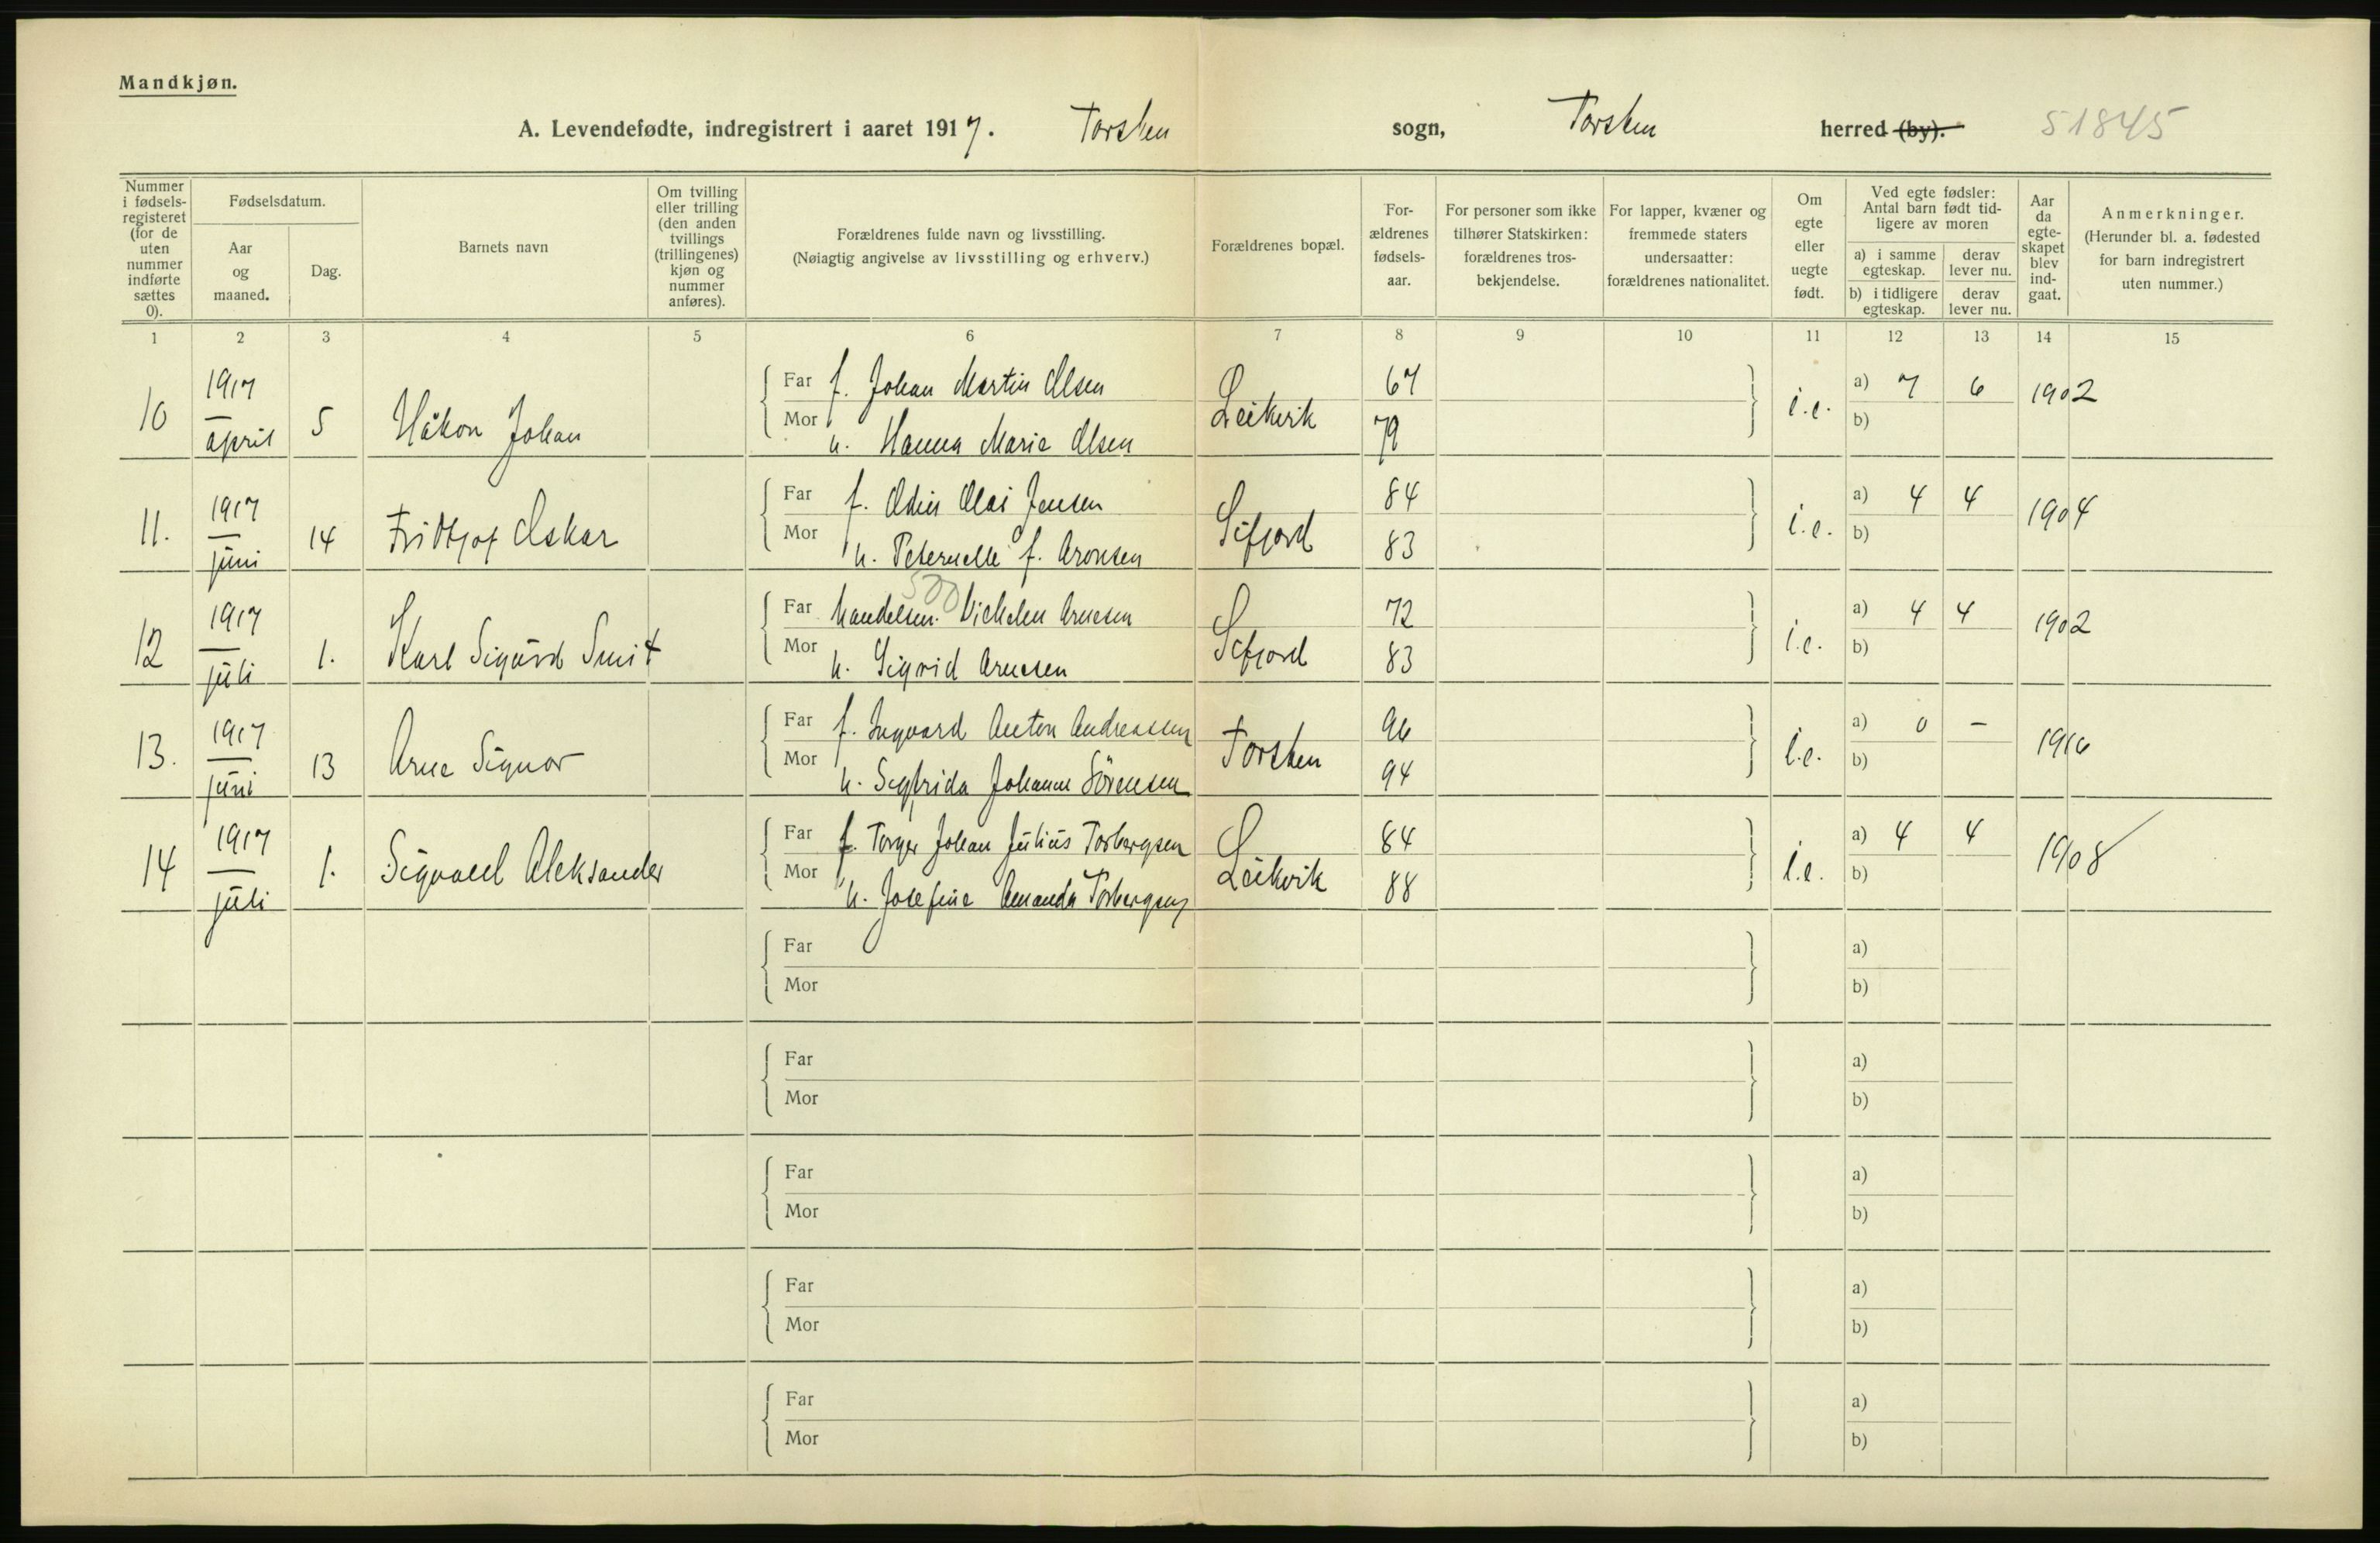 Mandkjøn.
A. Levendefødte, indregistrert i aaret 1917. Torsken sogn, Torsken herred (by). 51845
Nummer i fødselsregisteret (for de uten nummer indførte sættes 0).
Fødselsdatum.
Aar og maaned.
Dag.
Barnets navn
Om tvilling eller trilling (den anden tvillings (trillingenes) kjøn og nummer anføres).
Forældrenes fulde navn og livsstilling.
(Nøiagtig angivelse av livsstilling og erhverv.)
Forældrenes bopæl.
Forældrenes fødselsaar.
For personer som ikke tilhører Statskirken: forældrenes trosbekjendelse.
For lapper, kvæner og fremmede staters undersaatter: forældrenes nationalitet.
Om egte eller uegte født.
Ved egte fødsler: Antal barn født tidligere av moren
a) i samme egteskap. derav lever nu.
b) i tidligere egteskap. derav lever nu.
Aar da egteskapet blev indgaat.
Anmerkninger.
(Herunder bl. a. fødested for barn indregistrert uten nummer.)
1 2 3 4 5 6 7 8 9 10 11 12 13 14 15
10 1917 april 5 Håkon Johan
Far f. Johan Martin Olsen Leikvik 67 i.e. a) 7 6 1902
Mor h. Hanna Marie Olsen 79 b)
11. 1917 juni 14 Fridtjof Oskar
Far f. Odin Olai Jensen Sifjord 84 i.e. a) 4 4 1904
Mor h. Peternelle f. Aronsen 83 b)
500
12 1917 juli 1. Karl Sigurd Smit
Far Handelsm. Vilhelm Arnesen Sifjord 72 i.e. a) 4 4 1902
Mor h. Sigrid Arnesen 83 b)
13. 1917 juni 13 Arne Signor
Far f. Ingvard Anton Andreassen Torsken 96 i.e. a) 0 – 1916
Mor h. Segfrida Johanne Sørensen 94 b)
14 1917 juli 1. Sigvald Aleksander
Far f. Torger Johan Julius Torbergsen Leikvik 84 i.e. a) 4 4 1908
Mor h. Josefine Amanda Torbergsen 88 b)
Far a)
Mor b)
Far a)
Mor b)
Far a)
Mor b)
Far a)
Mor b)
Far a)
Mor b)